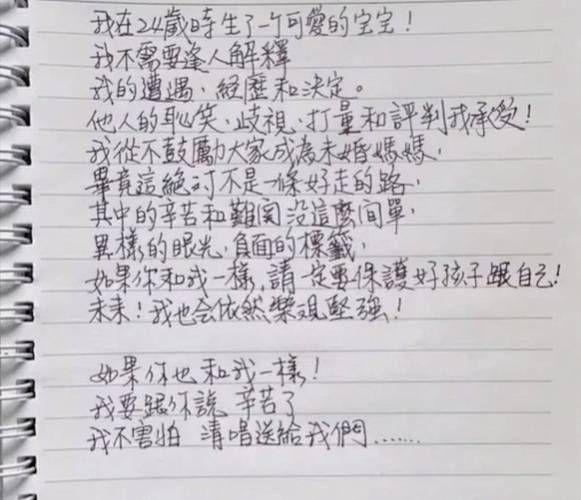 我在24歲時生了一个可愛的宝宝！
我不需要逢人解釋
我的遭遇、經歷和決定。
他人的恥笑、歧視、打量和評判我承受！
我從不鼓勵大家成為未婚媽媽，
畢竟這絕对不是一條好走的路，
其中的辛苦和難関没這麼简單，
異樣的眼光，負面的標籤，
如果你和我一樣，請一定要保護好孩子跟自己！
未來！我也会依然樂观堅強！
如果你也和我一樣！
我要跟你說 辛苦了
我不害怕 清唱送給我們……